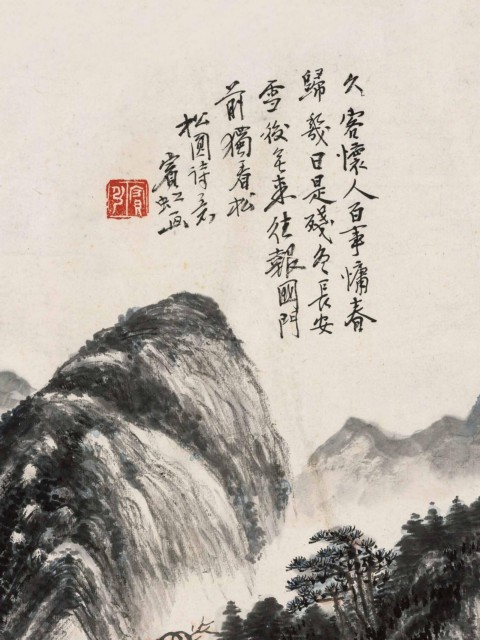 久客懷人百事慵春
歸幾日是殘冬長安
雪後无來往報國門
前獨看松
松圓詩意
賓虹画
賓虹